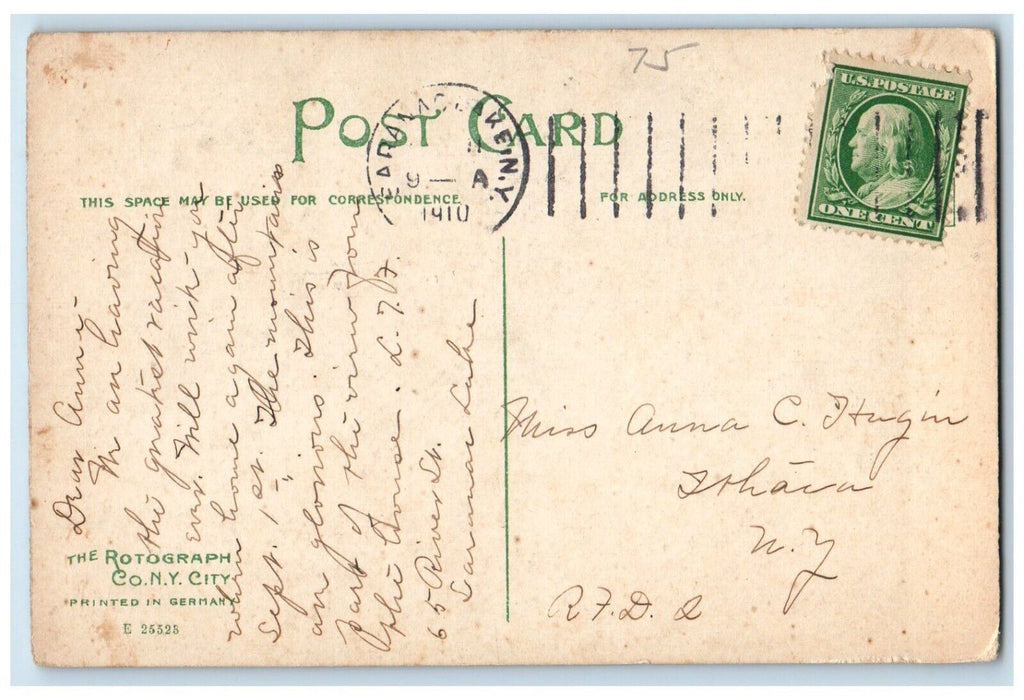 75
POST CARD
SARANAC LAKE, N.Y.
9 — A
1910
U.S. POSTAGE
ONE CENT
THIS SPACE MAY BE USED FOR CORRESPONDENCE
FOR ADDRESS ONLY.
Dear Anna
am having
the greatest vacation
ever. Will with you
when home again after
Sept. 1st. The mountains
are glorious. This is
part of the view from
the house.
65 River St.
Saranac Lake
Miss Anna C. Hugin
Ithaca
N.Y
R.F.D. 2
THE ROTOGRAPH
CO. N.Y. CITY
PRINTED IN GERMANY
E 25525